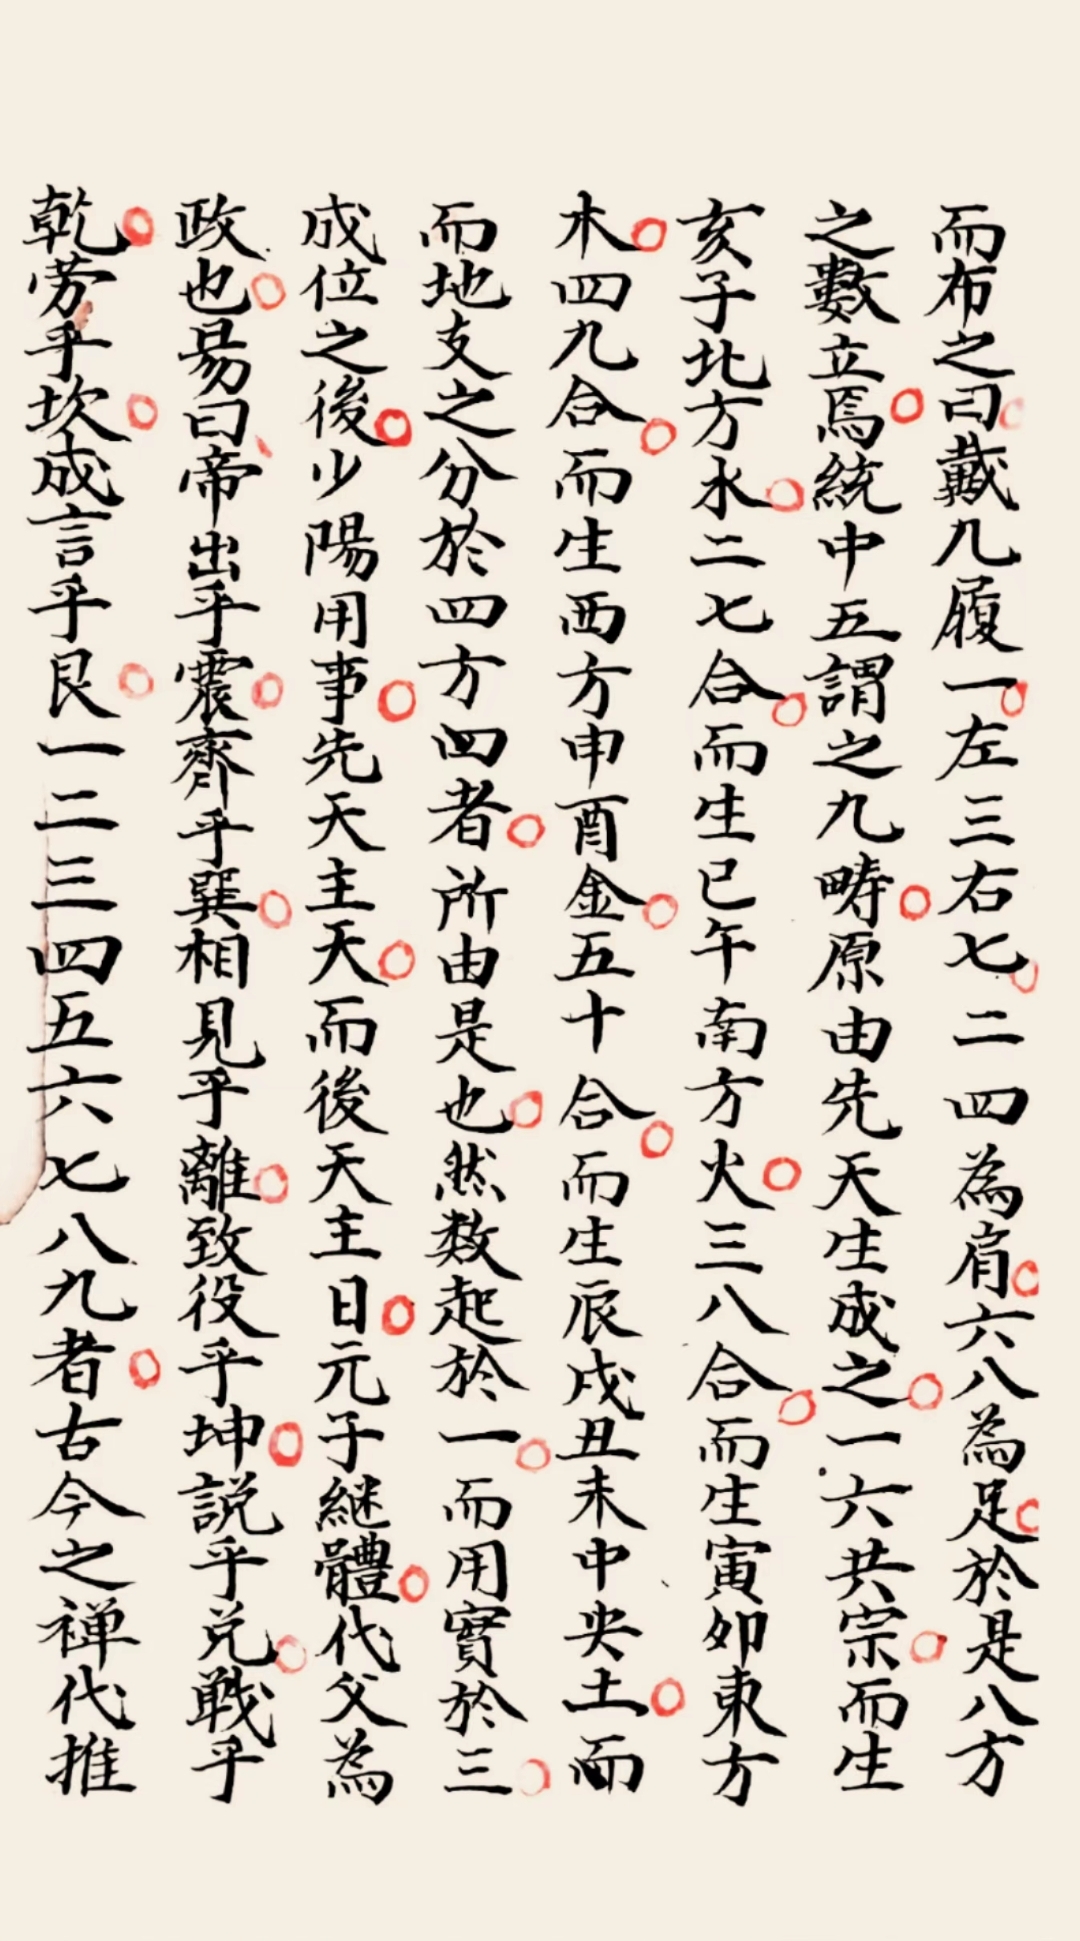 而布之曰戴九履一左三右七二四為肩六八為足於是八方
之數立焉統中五謂之九疇原由先天生成之一六共宗而生
亥子北方水二七合而生巳午南方火三八合而生寅卯東方
木四九合而生西方申酉金五十合而生辰戌丑未中央土而
而地支之分於四方四者所由是也然数起於一而用實於三
成位之後少陽用事先天主天而後天主日元子継體代父為
政也昜曰帝出乎震齊乎巽相見乎離致役乎坤説乎兑戦乎
乾劳乎坎成言乎艮一二三四五六七八九者古今之禅代推